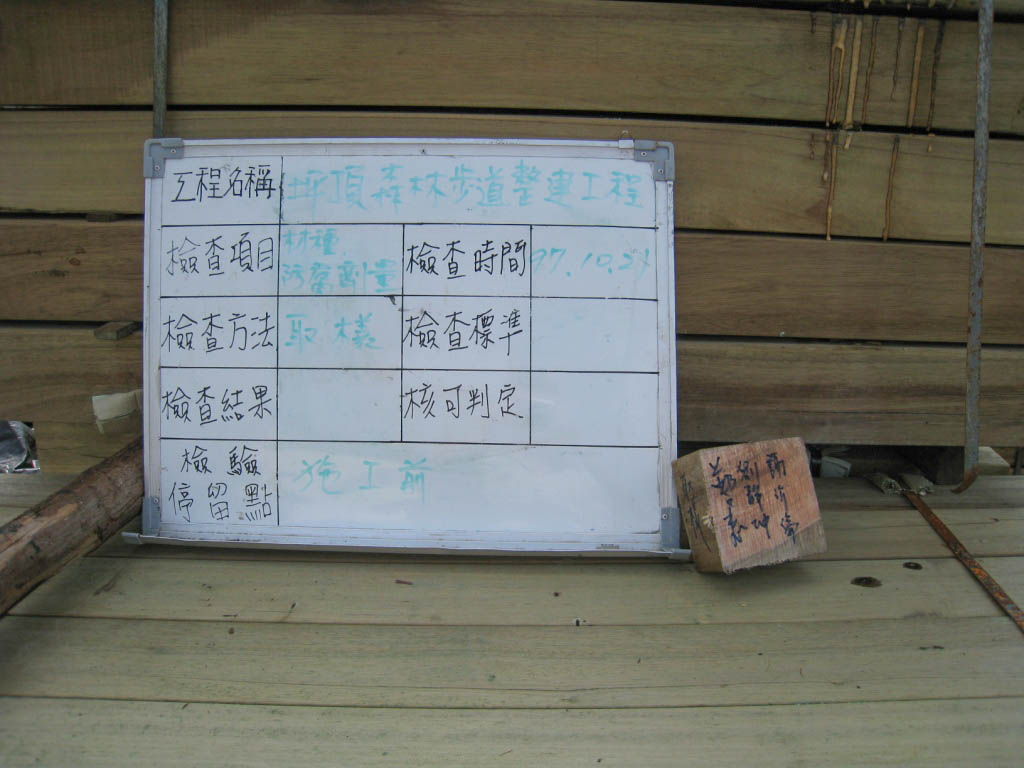 工程名稱 坪頂森林步道整建工程
檢查項目 材種、防腐劑量 檢查時間 97.10.27
檢查方法 取樣 檢查標準
檢查結果 核可判定
檢驗停留點 施工前